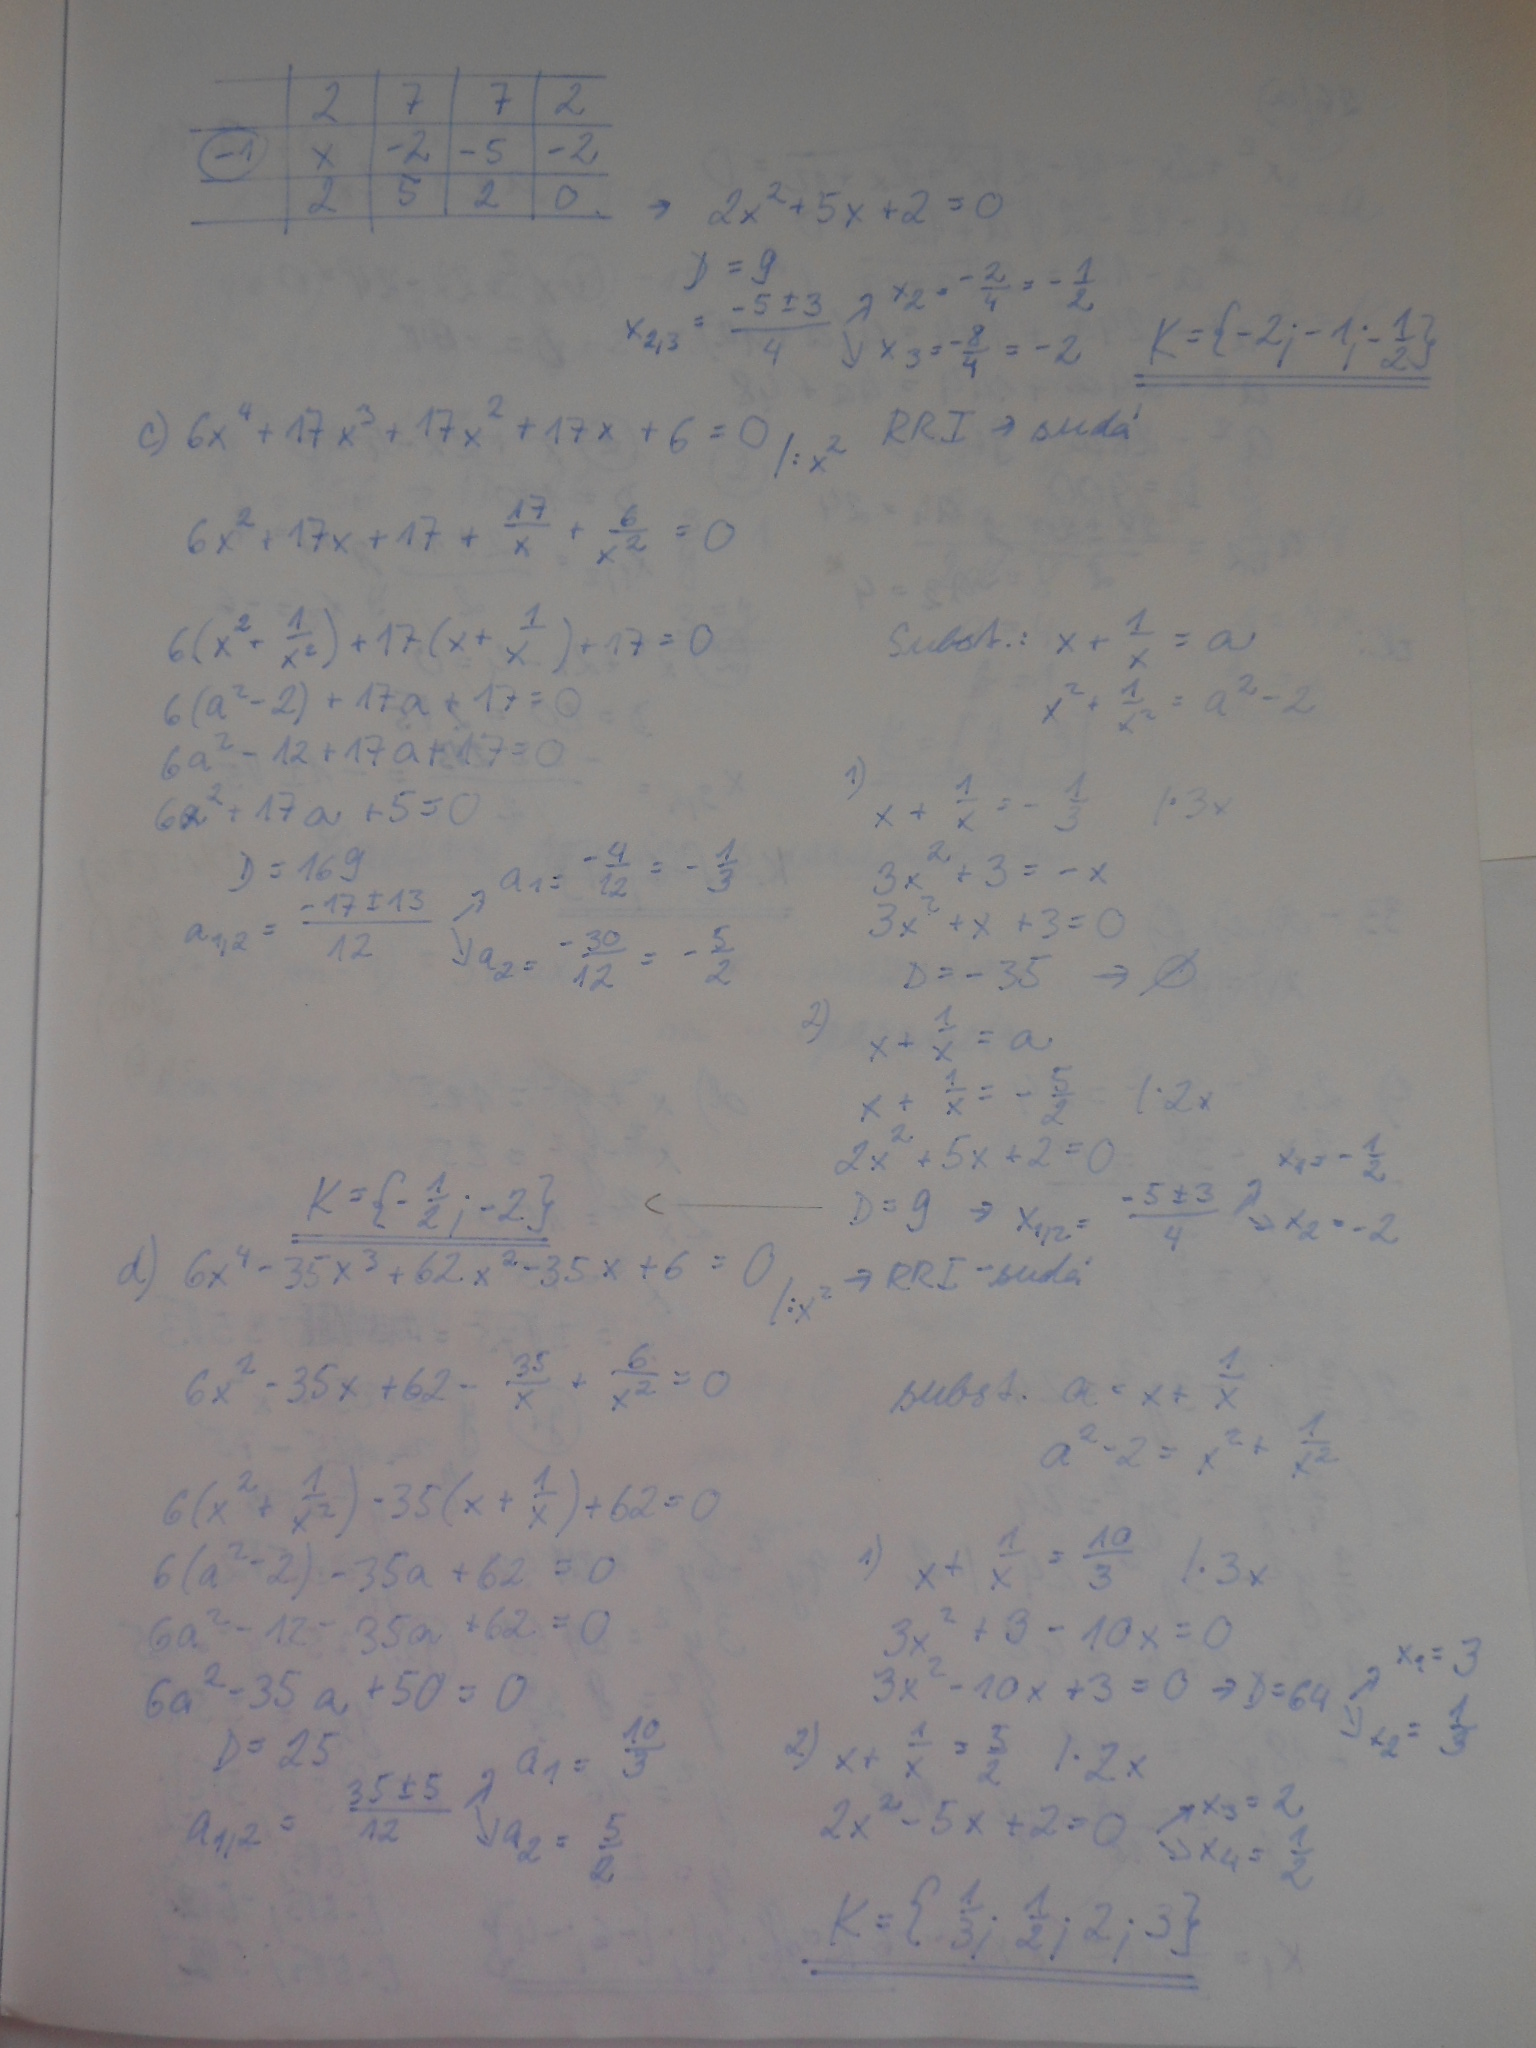 2 7 7 2
-1 x -2 -5 -2
2 5 2 0
→ 2x² + 5x + 2 = 0
D = 9
x₂,₃ = (-5 ± 3)/4 ↗ x₂ = -2/4 = -1/2
↘ x₃ = -8/4 = -2
K = {-2; -1; -1/2}
c) 6x⁴ + 17x³ + 17x² + 17x + 6 = 0 /:x² RRI → sudá
6x² + 17x + 17 + 17/x + 6/x² = 0
6(x² + 1/x²) + 17(x + 1/x) + 17 = 0
6(a² - 2) + 17a + 17 = 0
6a² - 12 + 17a + 17 = 0
6a² + 17a + 5 = 0
D = 169
a₁,₂ = (-17 ± 13)/12 ↗ a₁ = -4/12 = -1/3
↘ a₂ = -30/12 = -5/2
Subst.: x + 1/x = a
x² + 1/x² = a² - 2
1) x + 1/x = -1/3 /·3x
3x² + 3 = -x
3x² + x + 3 = 0
D = -35 → ∅
2) x + 1/x = a
x + 1/x = -5/2 /·2x
2x² + 5x + 2 = 0
D = 9 → x₁,₂ = (-5 ± 3)/4 ↗ x₁ = -1/2
↘ x₂ = -2
K = {-1/2; -2} ←
d) 6x⁴ - 35x³ + 62x² - 35x + 6 = 0 /:x² → RRI - sudá
6x² - 35x + 62 - 35/x + 6/x² = 0
6(x² + 1/x²) - 35(x + 1/x) + 62 = 0
6(a² - 2) - 35a + 62 = 0
6a² - 12 - 35a + 62 = 0
6a² - 35a + 50 = 0
D = 25
a₁,₂ = (35 ± 5)/12 ↗ a₁ = 10/3
↘ a₂ = 5/2
subst. a = x + 1/x
a² - 2 = x² + 1/x²
1) x + 1/x = 10/3 /·3x
3x² + 3 - 10x = 0
3x² - 10x + 3 = 0 → D = 64 ↗ x₁ = 3
↘ x₂ = 1/3
2) x + 1/x = 5/2 /·2x
2x² - 5x + 2 = 0 ↗ x₃ = 2
↘ x₄ = 1/2
K = {1/3; 1/2; 2; 3}